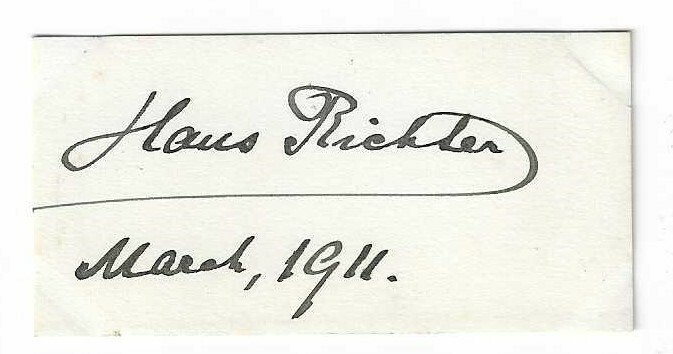 Hans Richter
March, 1911.